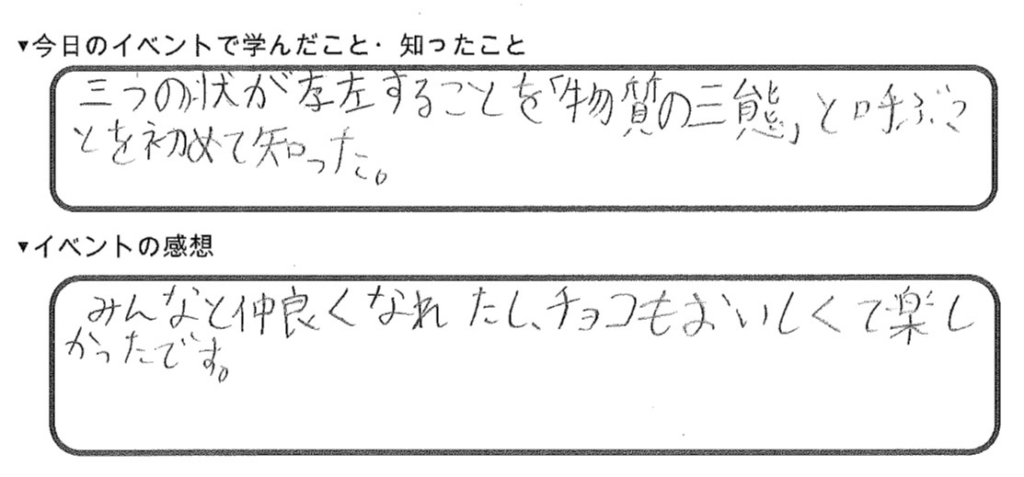 ▼今日のイベントで学んだこと・知ったこと
三つの状が存在することを「物質の三態」と呼ぶこ
とを初めて知った。
▼イベントの感想
みんなと仲良くなれたし、チョコもおいしくて楽し
かったです。